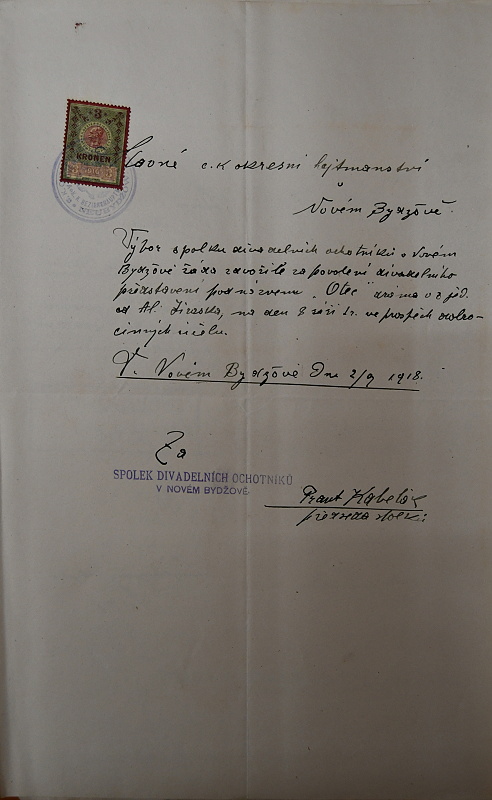 3
KRONEN
Slavné c. k. okresní hejtmanství
v
Novém Bydžově.
Výbor spolku divadelních ochotníků v Novém
Bydžově žádá zdvořile za povolení divadelního
představení pod názvem „Otec" drama o 3 jed.
od Al. Jiráska, na den 8 září t.r. ve prospěch dobro-
činných účelů.
V. Novém Bydžově Dne 2/9 1918.
Za
SPOLEK DIVADELNÍCH OCHOTNÍKŮ
V NOVÉM BYDŽOVĚ.
Frant Kabelák
předseda